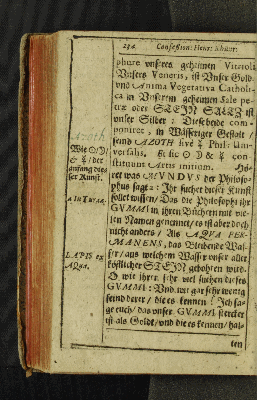 234. Confession: Henr: Khunr:
phure unsers geheimen Vitriols
Unsers Veneris, ist Unser Gold.
Und Anima Vegetativa Catholi-
ca in Unserm geheimen Sale pe-
træ oder STEIN SALTZ ist
unser Silber: Diese beide com-
poniret, in Wässeriger Gestalt /
seind AZOTH sive ☿ Phil: Uni-
versalis. Et sic ☉ ☽ & ☿ con-
stituunt Artis initium.
ret was MUNDUS der Philoso-
phus sagt: Ihr sucher dieser Kunst
sollet wissen / Das die Philosophi ihr
GUMMI in ihren Büchern mit vie-
len Namen genennet / es ist aber doch
nicht anders / Als AQUA PER-
MANENS, das Bleibende Was-
ser / aus welchem Wasser unser aller
köstlicher STEIN gebohren wird.
O wie ihrer sehr viel suchen dieses
GUMMI: Und wie gar sehr wenig
seind derer / die es kennen! Ich sa-
ge euch / das unser GUMMI stercker
ist als Goldt / und die es kennen / hal-
ten
Azoth
Wie ☉ ☽
& ☿ der
anfang die-
ser Kunst.
LAPIS ex
AQua.